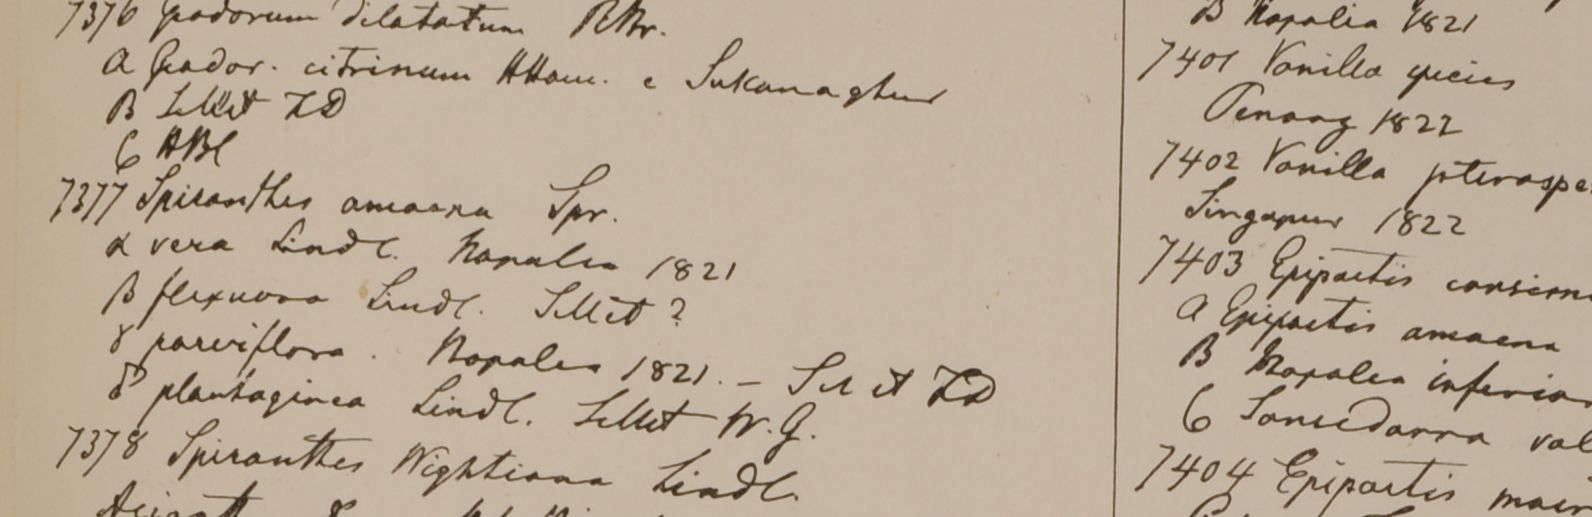 7376 Geodorum dilatatum RBr.
A Geodor. citrinum HHam. e Sukanaghur
B Sillet FD
C HBC
7377 Spiranthes amaena Spr.
α vera Lindl. Napalia 1821
β flexuosa Lindl. Sillet?
γ parviflora. Napalia 1821. – Sillet FD
δ plantaginea Lindl. Sillet W.G.
7378 Spiranthes Wightiana Lindl.
B Napalia 1821
7401 Vanilla species
Penang 1822
7402 Vanilla pterospe
Singapur 1822
7403 Epipactis consim
A Epipactis amaena
B Napalia inferior
C
7404 Epipactis macr